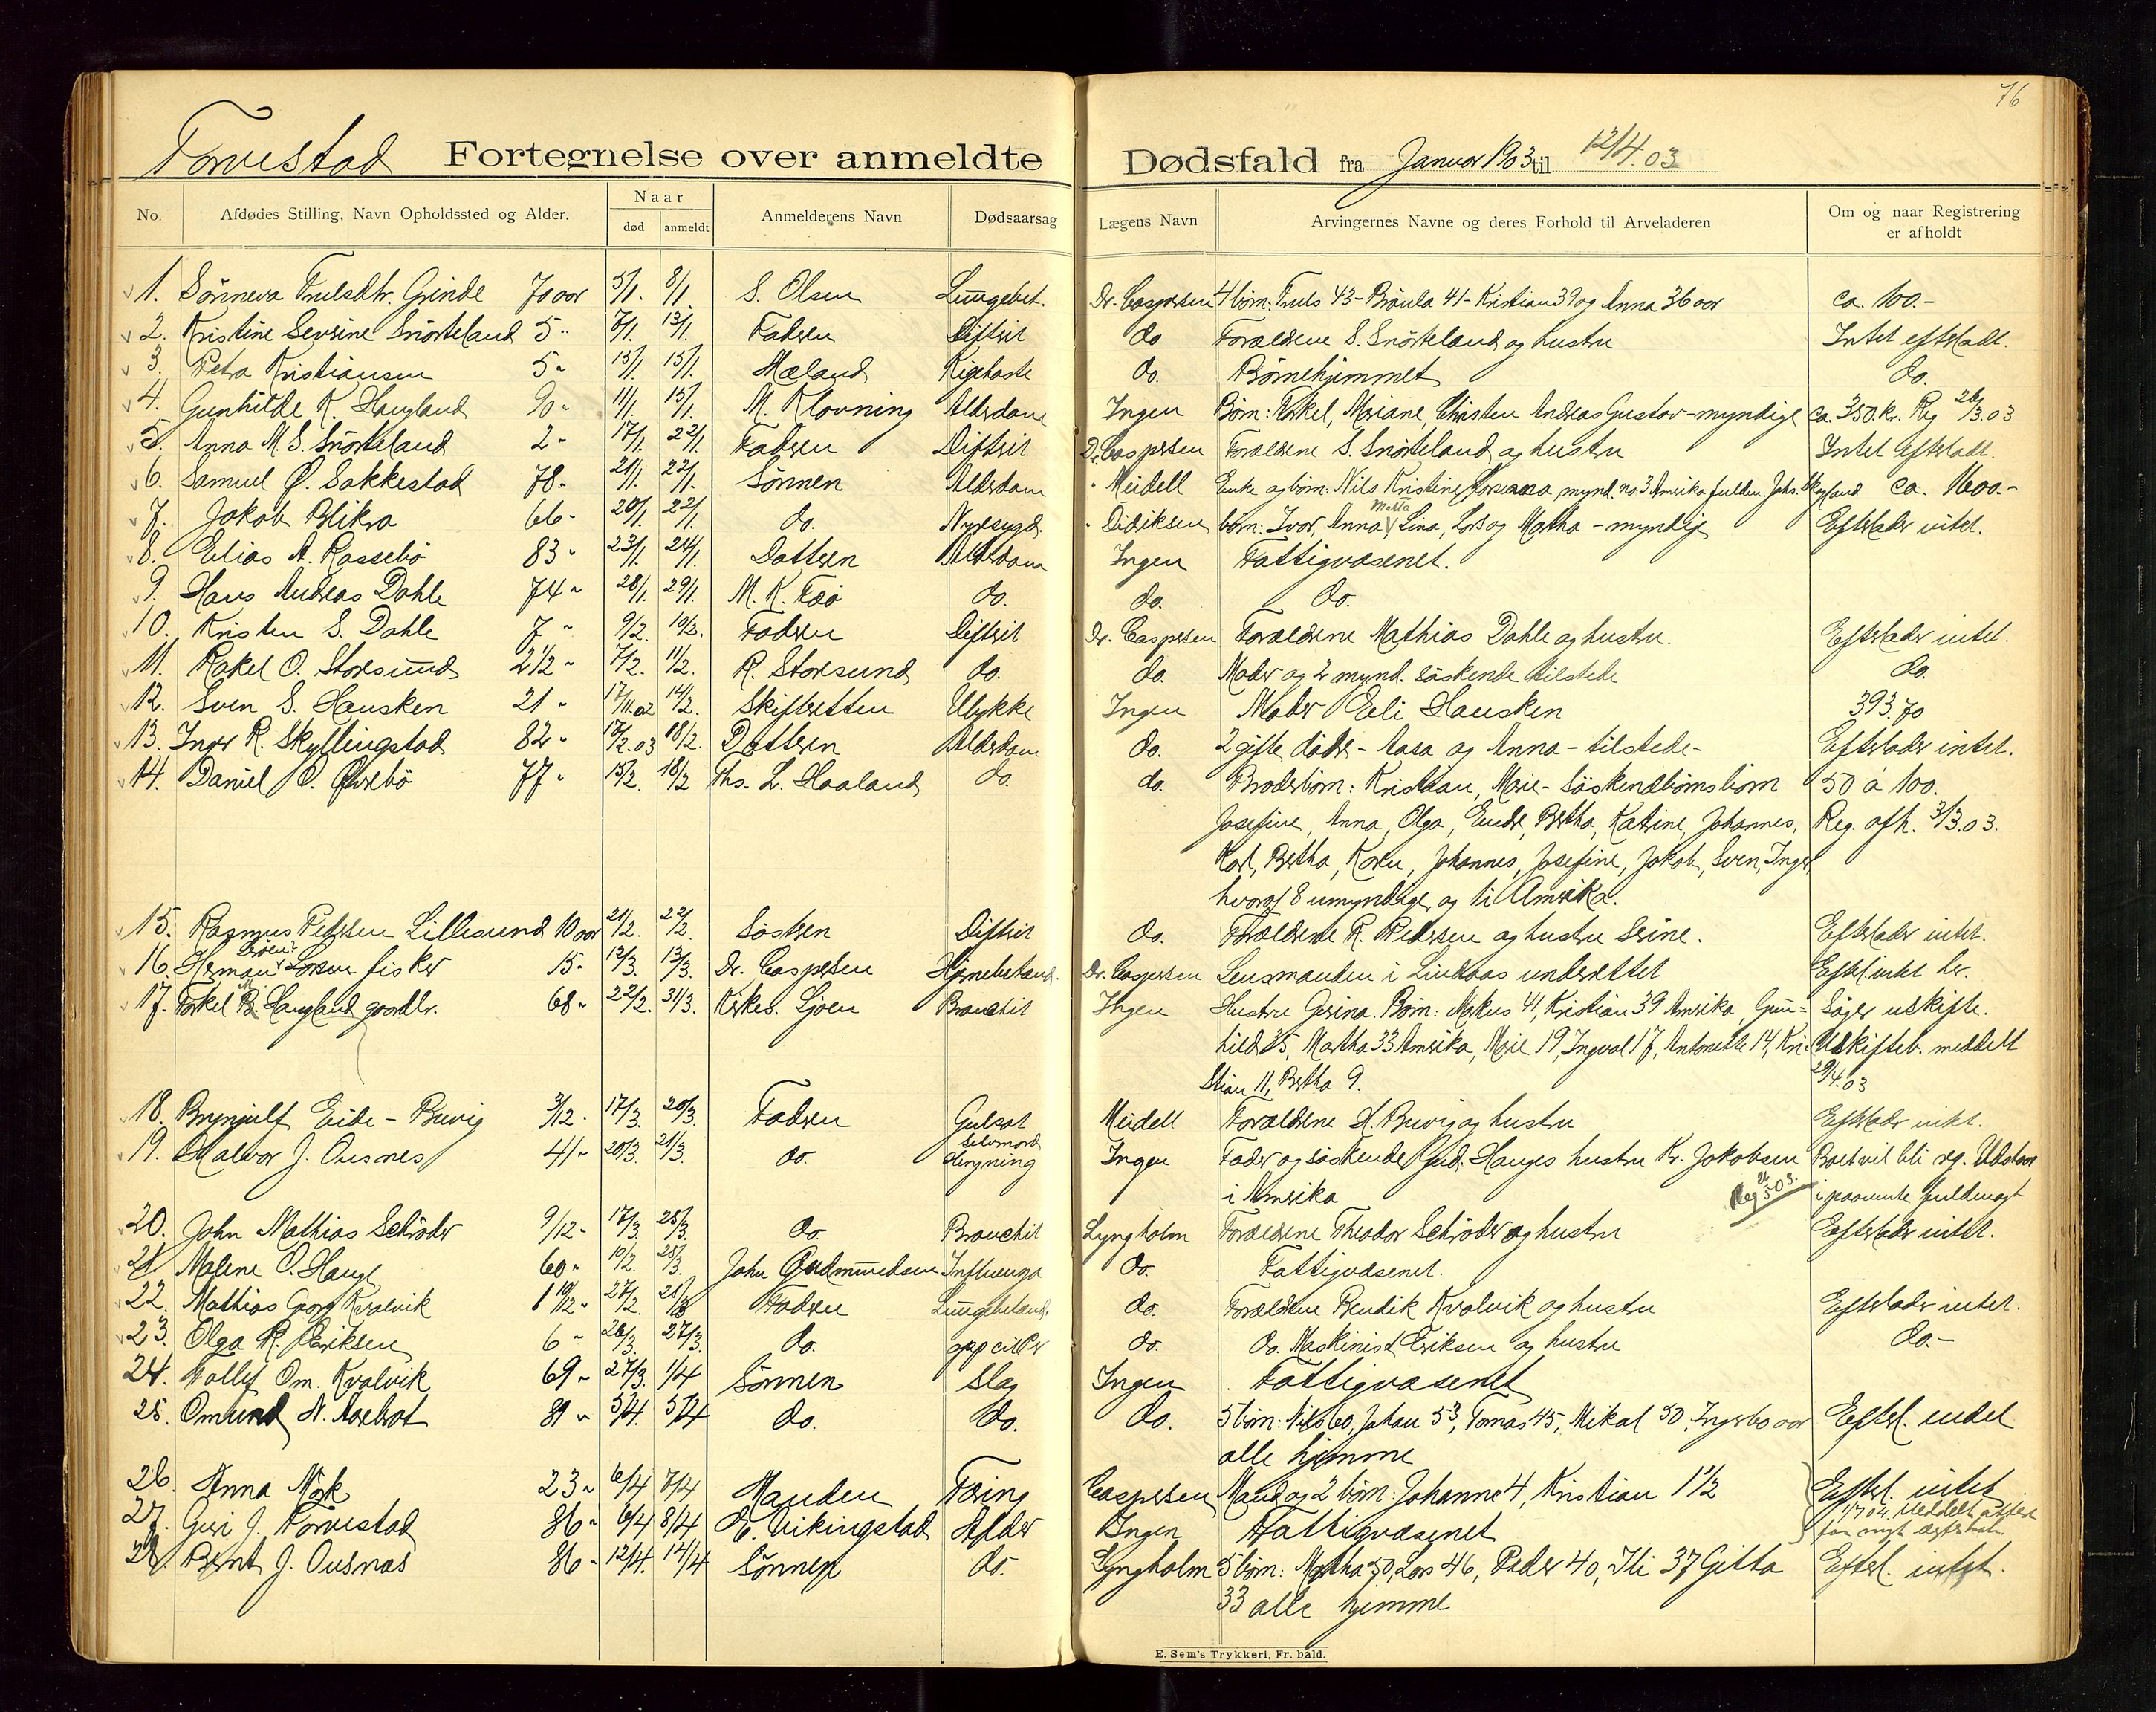 76
Torvestad Fortegnelse over anmeldte Dødsfald fra Januar 1903 til 12/4.03
No. Afdødes Stilling, Navn Opholdssted og Alder. Naar død anmeldt Anmelderens Navn Dødsaarsag Lægens Navn Arvingernes Navne og deres Forhold til Arveladeren Om og naar Registrering er afholdt
1. Sönneva Trulsdtr. Grinde 70 aar 5/1. 8/1. S. Olsen Lungebet. Dr. Caspersen 4 börn: Truls 43 - Bröula 41 - Kristian 39 og Anna 36 aar ca. 100.-
2. Kristine Severine Snörteland 5 " 7/1. 13/1. Faderen Diftrit do Forældrene S. Snörteland og hustru Intet efterladt.
3. Petra Kristiansen 5 " 15/1. 15/1. Mæland Kighoste do. Börnehjemmet do.
4. Gunhilde K. Haugland 90 " 11/1. 15/1. M. Klovning Alderdom Ingen Börn: Torkel, Mariane, Christen Andreas Gustav - myndige ca. 350. kr. Reg 26/3.03
5. Anna M. S. Snörteland 2 " 17/1. 22/1. Faderen Diftrit Dr. Caspersen Forældrene S. Snörteland og hustru Intet Efterladt.
6. Samuel Ø. Sakkestad 78 " 21/1. 22/1. Sönnen Alderdom " Meidell Enke og börn: Nils Kristine mynd. no. 3 Amerika fuldm. Johs. ca. 1600.-
7. Jakob Blikra 66 " 20/1. 22/1. do. Nyresygd. " Didriksen börn: Ivar, Anna, Malla Lina, Lars og Martha - myndige Efterlader intet.
8. Elias A. Rossebö 83 " 23/1. 24/1. Datteren Alderdom Ingen Fattigvæsenet.
9. Hans Andreas Dahle 74 " 28/1. 29/1. M. K. Feö do. do. do.
10. Kristen S. Dahle 7 " 9/2. 10/2. Faderen Diftrit Dr. Caspersen Forældrene Mathias Dahle og hustru. Efterlader intet.
11. Rakel O. Storsund 21/2 " 7/2. 11/2. R. Storesund do. do. Moder og 2 mynd. söskende tilstede do.
12. Sven S. Hausken 21 " 17/11.02 14/2. Skifteretten Ulykke Ingen Moder Eli Hausken 393.70
13. Inger R. Skyllingstad 82 " 12/2.03 18/2. Datteren Alderdom do. 2 gifte dödre - Aasa og Anna - tilstede - Efterlader intet.
14. Daniel O. Øvrebö 77 " 15/2. 18/2 Ths. L. Haaland do. do. Broderbörn: Kristian, Marie - Söskendbörnsbörn 50 à 100.
Josefine, Anna, Olga, Endre, Bertha, Katrine, Johannes, Reg. afh. 3/3.03.
Karl, Bertha, Karen, Johannes, Josefine, Jakob, Sven, Inger,
hvoraf 8 umyndige og ti Amerika.
15. Rasmus Pedersen Lillesund 10 aar 21/2. 22/2. Söstren Diftrit do. Forældrene R. Pedersen og hustru Serine. Efterlader intet.
16. Herman Larsen fisker 15 " 12/3. 13/3. Dr. Caspersen Hjernebetænd. Dr. Caspersen Lensmanden i Lindaas underrettet Efterl intet her.
17. Torkel B. Haugland gaardbr. 68 " 22/2. 31/3. Kirkes. Sjöen Bronchit Ingen Hustru Gerina. Börn: Markus 41, Kristian 39 Amerika, Gun- Söger uskifte.
hild 35, Martha 33 Amerika, Marie 19, Ingval 17, Antonette 14, Kri- Uskifteb. meddelt
stian 11, Bertha 9. 29/4.03
18. Brynjulf Eide - Buvig 3/12 " 17/3. 20/3. Faderen Gulsot Meidell Forældrene H. Buvig og hustru Efterlader intet.
19. Halvor J. Ousnes 41 " 20/3. 21/3. do. selvmord Hengning Ingen Fader og söskende Gud. Hauges hustru Kr. Jakobsen Boet vil bli reg. Udstaar
i Amerika Reg 21/5 03. i paavente fuldmagt
20. John Mathias Schröder 9/12 " 17/3. 25/3. do. Bronchit Lyngholm Forældrene Theodor Schröder og hustru Efterlader intet.
21. Malene O. Hauge 60 " 10/2. 25/3. John Gudmundsen Influenza do. Fattigvæsenet.
22. Mathias Georg Kvalvik 1 10/12 " 27/2. 25/3 Faderen Lungebetænd. do. Forældrene Bendik Kvalvik og hustru Efterlader intet.
23. Olga R. Eriksen 6 " 26/3. 27/3. do. do. do. Maskinist Eriksen og hustru do. -
24. Tollef Om. Kvalvik 69 " 27/3. 1/4 Sönnen Slag Ingen Fattigvæsenet
25. Omund N. 81 " 3/4. 5/4 do. do. do. 5 börn: Nils 60, Johan 53, Tomas 45, Mikal 50, Inger 60 aar Efterl. intet
alle hjemme
26. Anna Mörk 23 " 6/4 7/4 Manden Tæring Caspersen Mand og 2 börn: Johanne 4, Kristian 1 1/2 Efterl. intet
27. Guri J. Torvestad 86 " 6/4 8/4 E. Vikingstad Alder Ingen Fattigvæsenet
28. Bernt J. Ousnes 86 " 12/4. 14/4 Sönnen do. Lyngholm 5 börn: Martha 50, Lars 46, Peder 40, Ili 37 Gitta Efterl. intet.
33 alle hjemme
E. Sem's Trykkeri, Fr. hald.